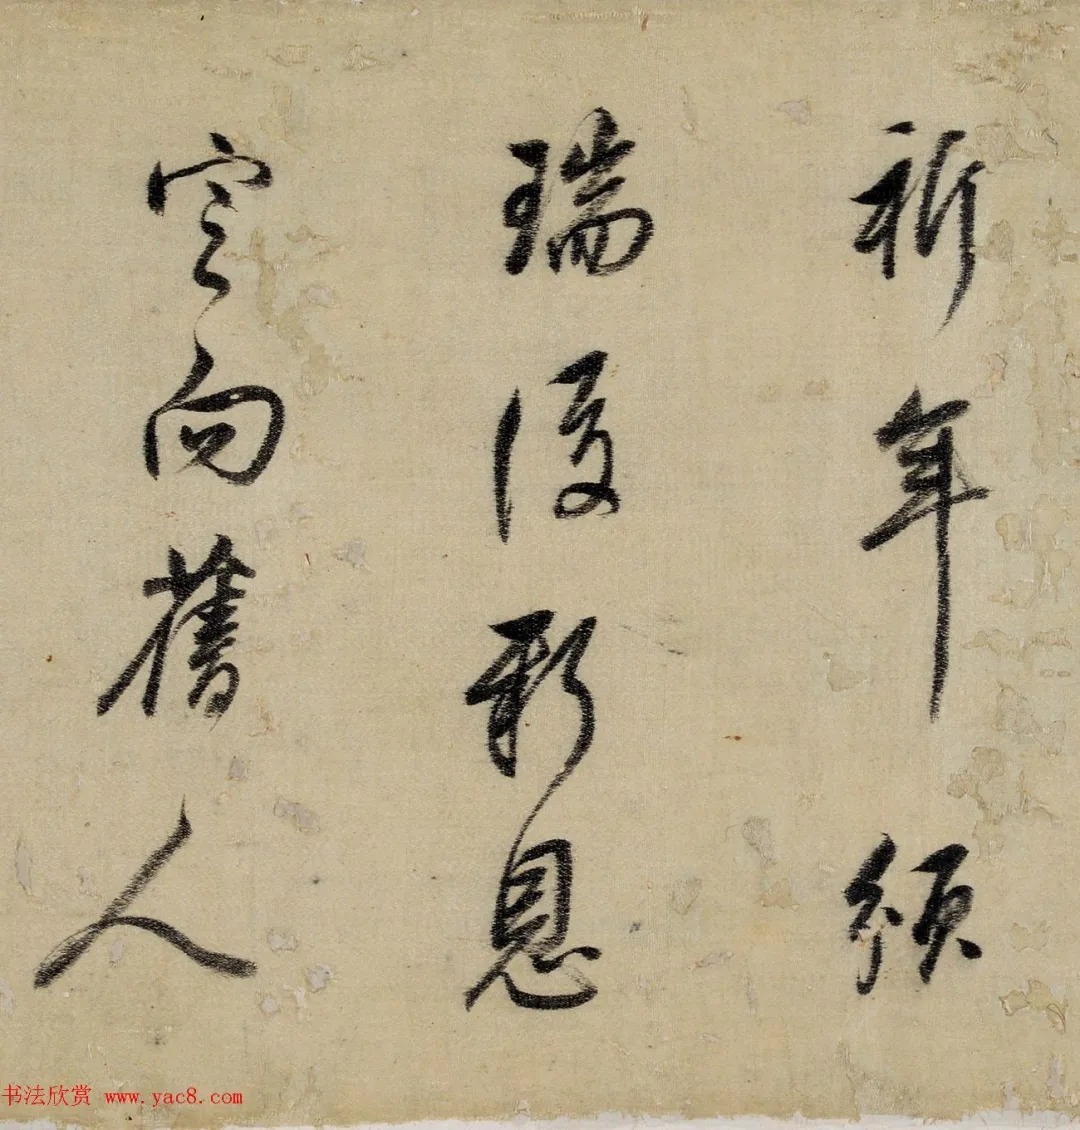 祈年頒
瑞後新息
定向舊人
书法欣赏 www.yac8.com